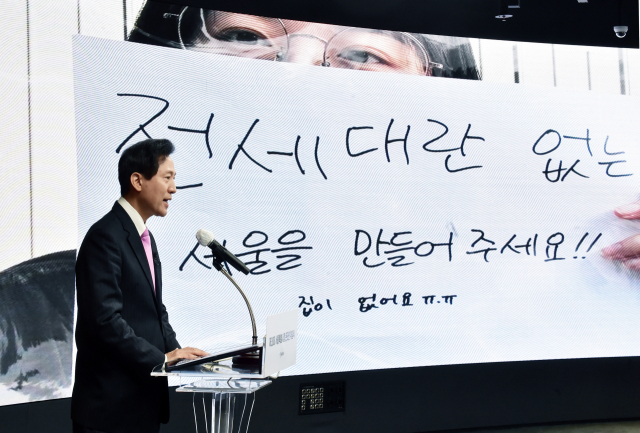 전세대란 없는
서울을 만들어주세요!!
집이 없어요 ㅠ.ㅠ